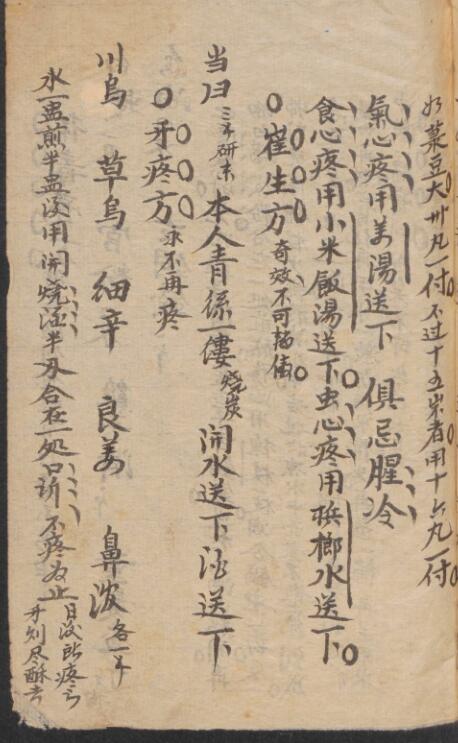 如菉豆大卅丸一付 不过十五岁者用十六丸一付
氣心疼用姜湯送下 俱忌腥冷
食心疼用小米飯湯送下 虫心疼用梹榔水送下
崔生方 奇效不可
当归 三末研末 本人青係一僂 烧炭 開水送下 酒送下
牙疼方 永不再疼
川乌 草乌 细辛 良姜 鼻 各一
水一盅煎半盅没用開烧酒半 合在一処口 不疼为止
日没所疼
牙刻尽酥